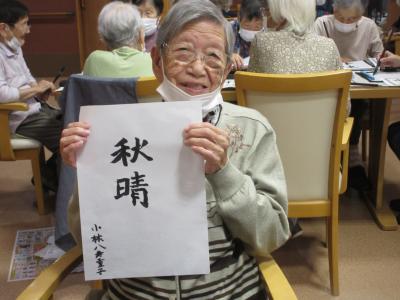 秋晴
小林八寿子